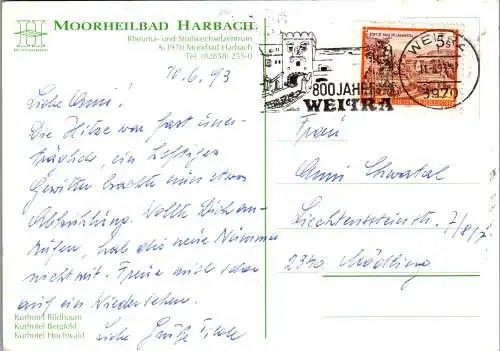 MOORHEILBAD HARBACH
Rheuma- und Stoffwechselzentrum
A-3970 Moorbad Harbach
Tel. (02858) 255-0
10.6.93
Liebe Anni!
Die Hitze war fast uner-
träglich, ein heftiges
Gewitter brachte nun etwas
Abkühlung. Wollte Dich an-
rufen, hab die neue Nummer
nicht mit. Freue mich schon
auf ein Wiedersehen.
Liebe Grüße
Kurhotel Bildbaum
Kurhotel Bergfeld
Kurhotel Hochwald
800 JAHRE
WEITRA
WEITRA
3970
5s
Frau
Anni Chwatal
Liechtensteinstr. 7/8/
2340 Mödling